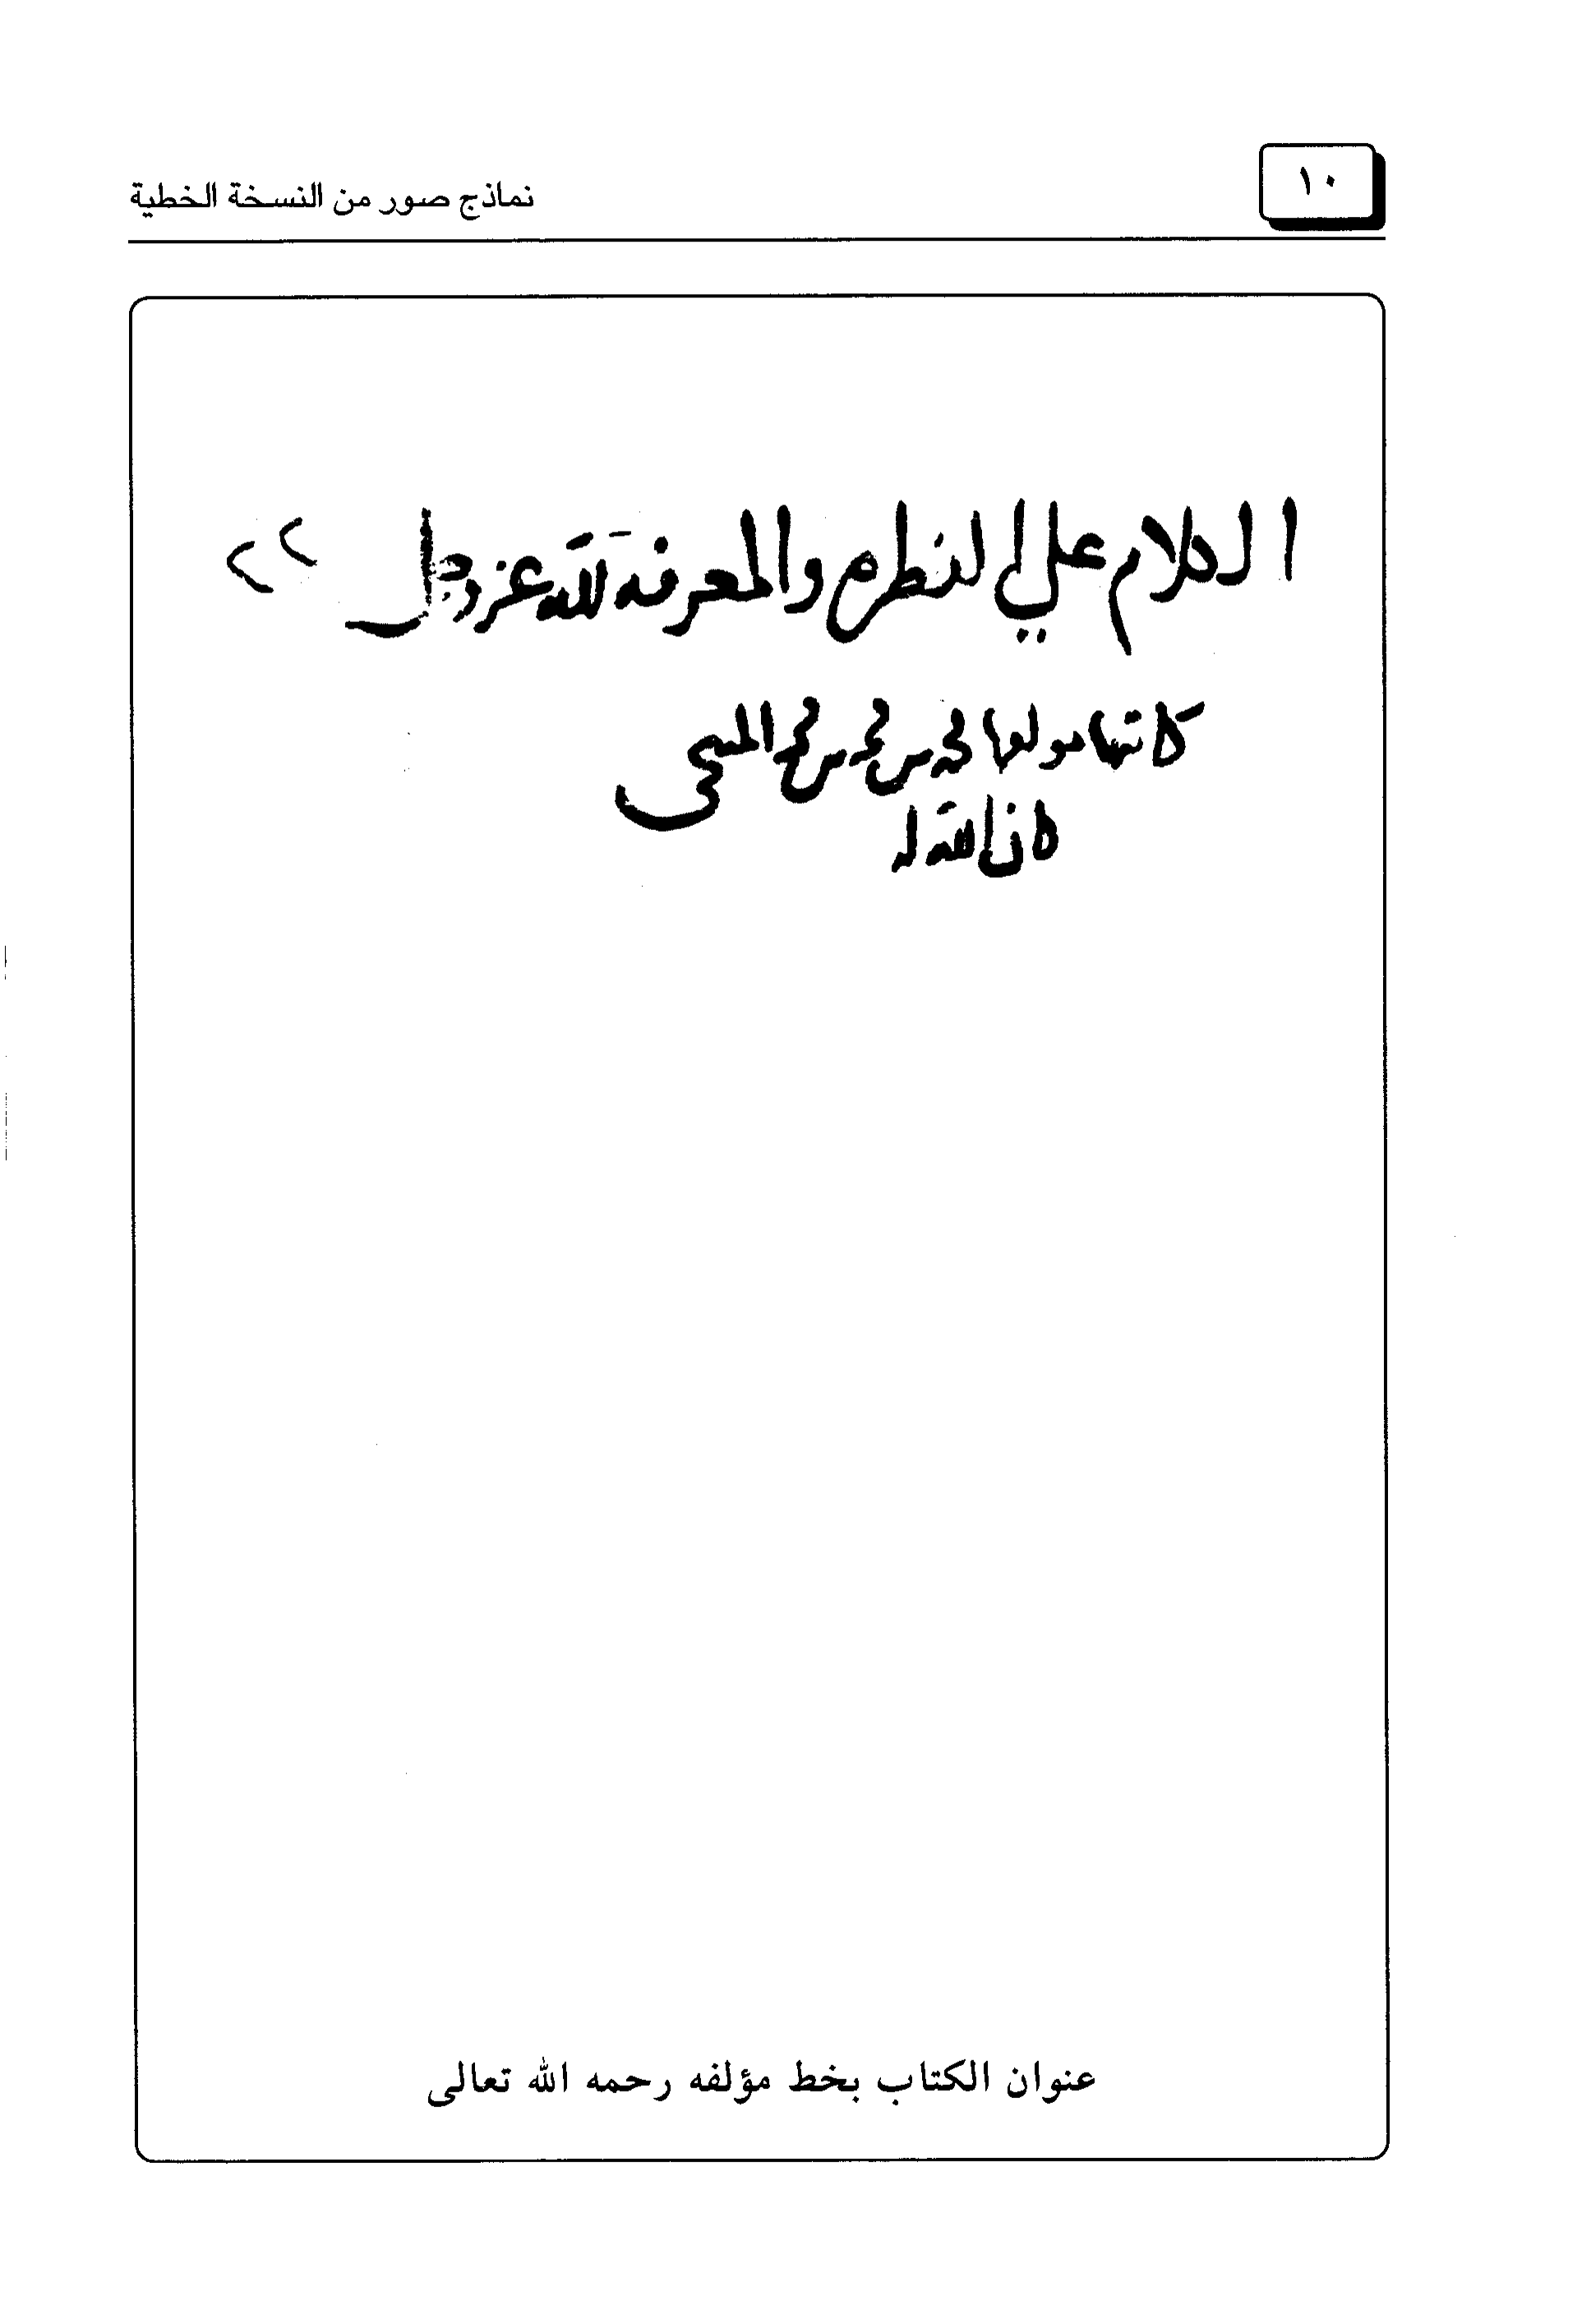 ١٠
نماذج صور من النسخة الخطية
الكلام على النظر والمعرفة لله عز وجل
كاتبها مولفها محمد بن محمد بن محمد المنبجي
كان الله له
عنوان الكتاب بخط مؤلفه رحمه الله تعالى